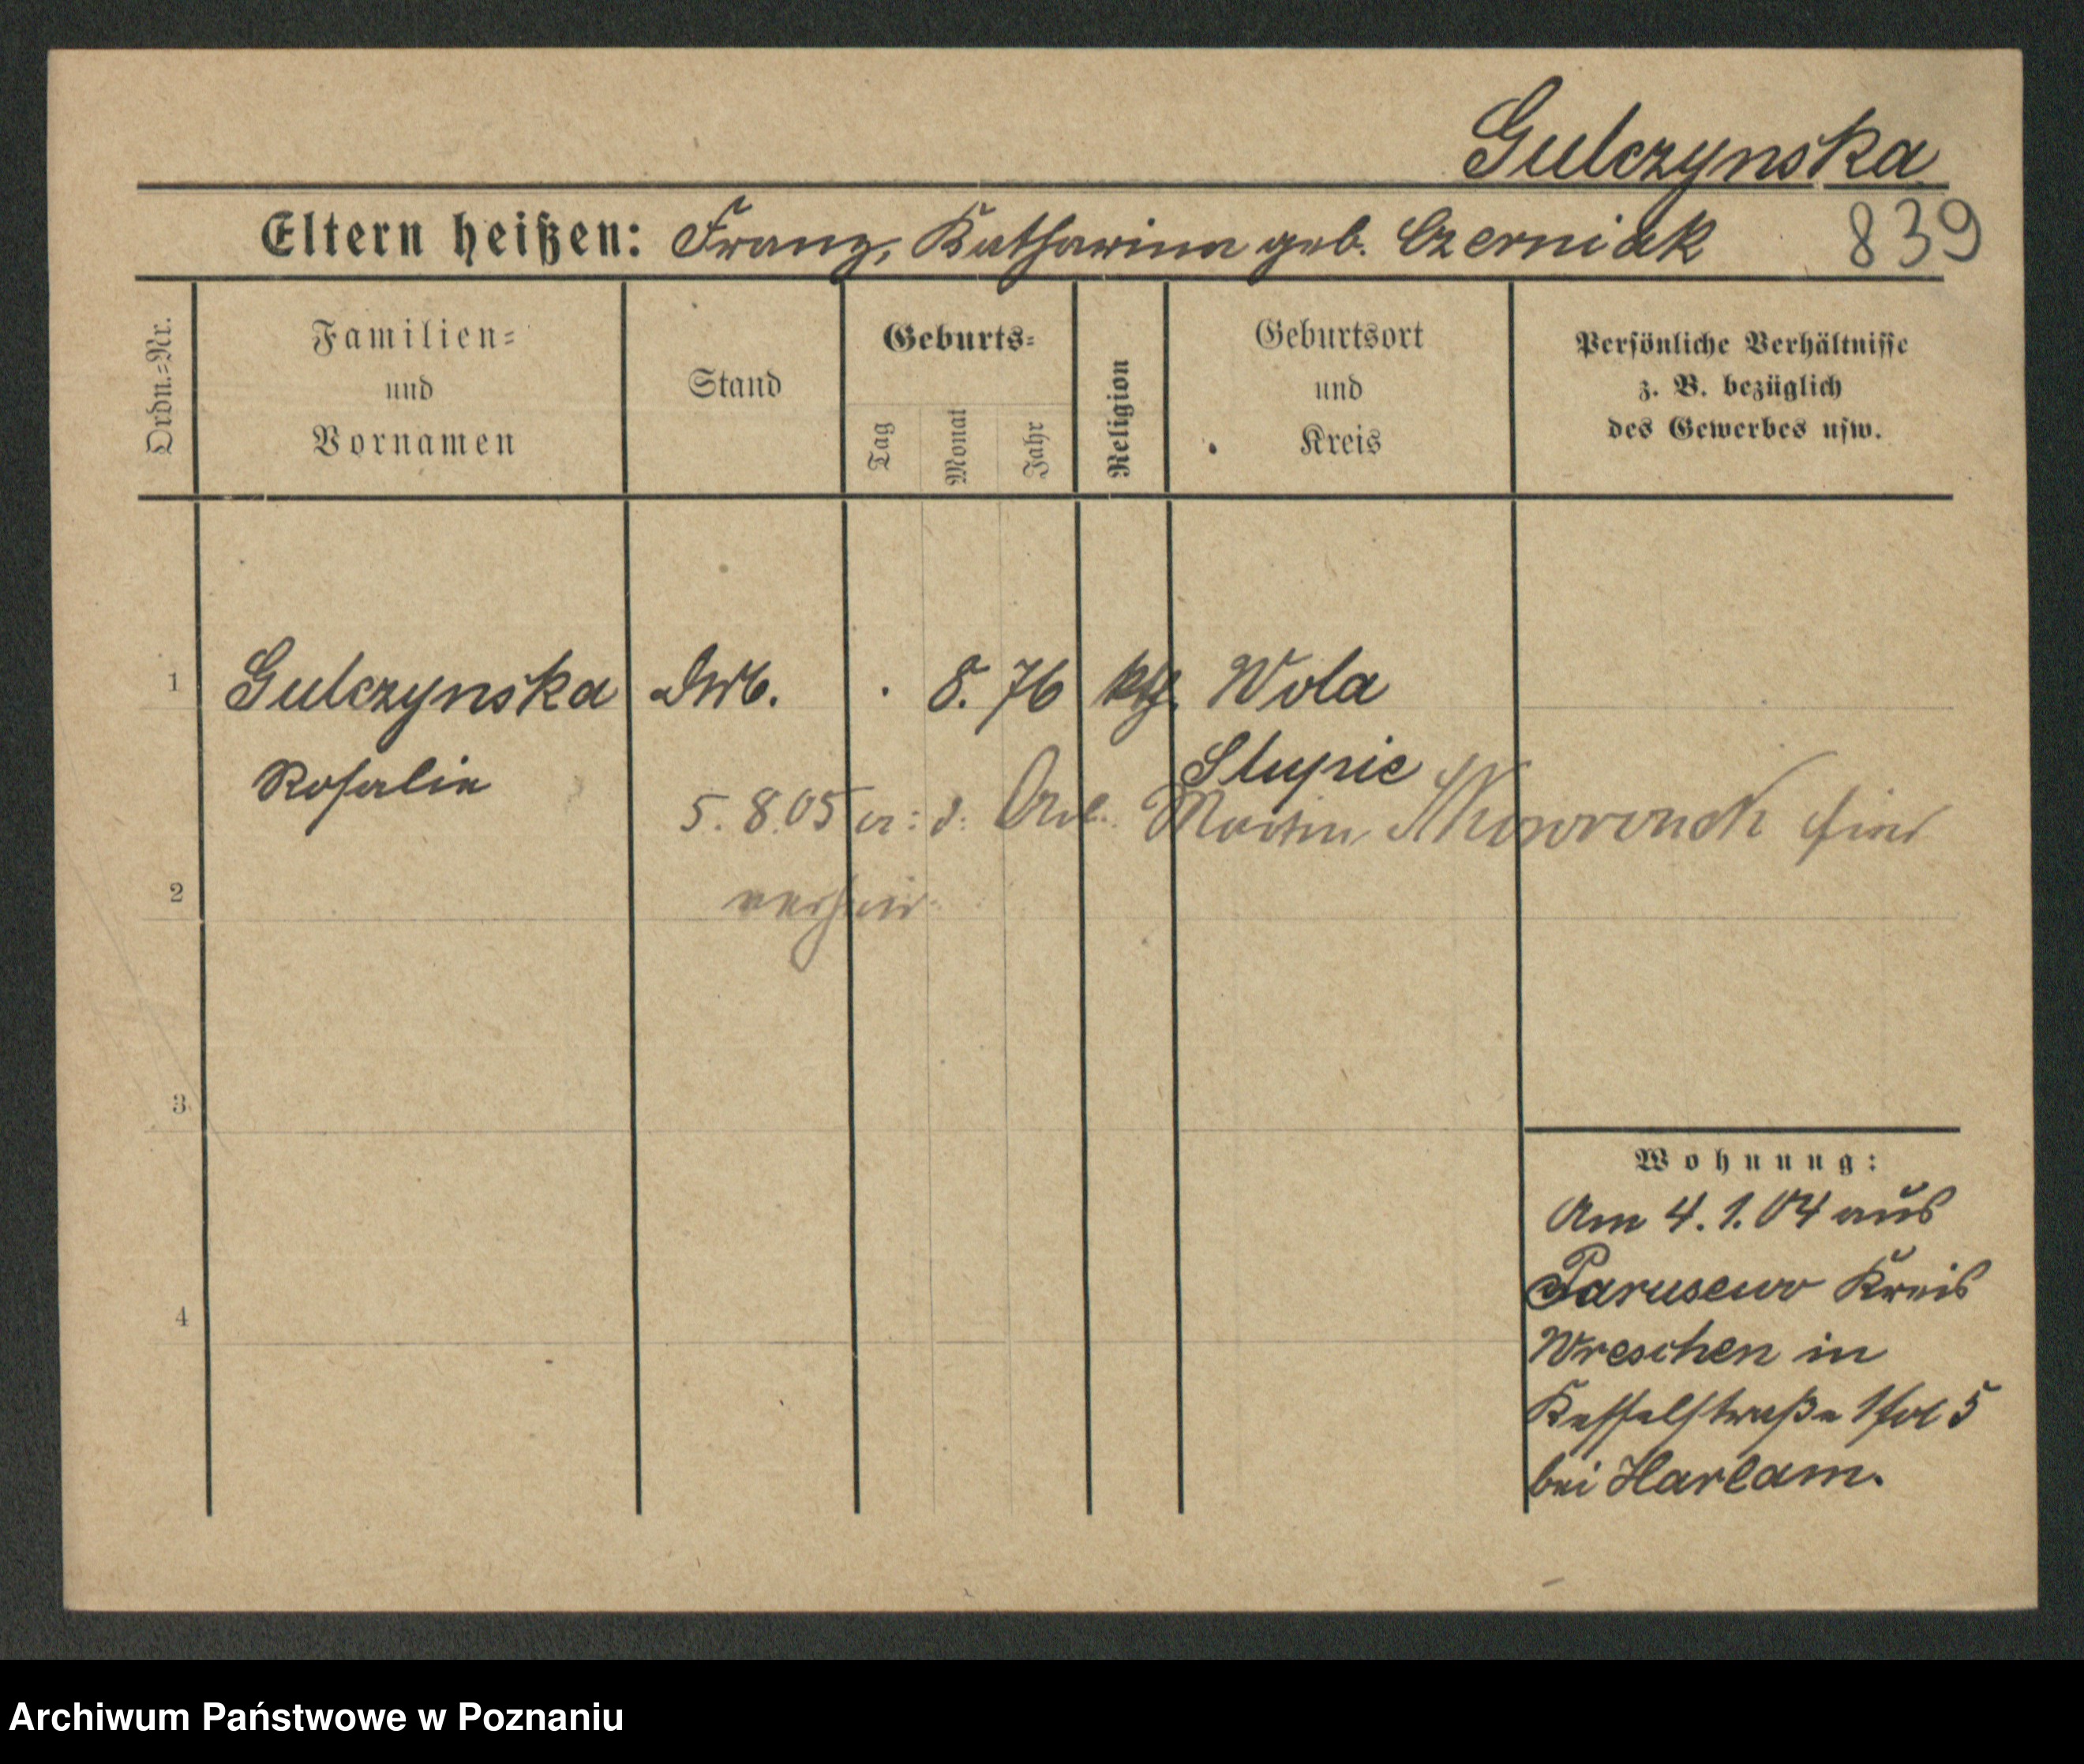 Gulczynska
Eltern heißen: Franz, Katharina geb. Czerniak 839
Ordn.=Nr.
Familien=
und
Vornamen
Stand
Geburts=
Tag
Monat
Jahr
Religion
Geburtsort
und
Kreis
Persönliche Verhältnisse
z. B. bezüglich
des Gewerbes usw.
1 Gulczynska 8. 76 kth. Wola
Rosalie Slupie
5. 8. 05 a: d: Arb. Martin
verheir.
2
3
4
Wohnung:
Am 4. 1. 04 aus
Parusewo Kreis
Wreschen in
Kesselstraße 5
bei Harlam.
Archiwum Państwowe w Poznaniu